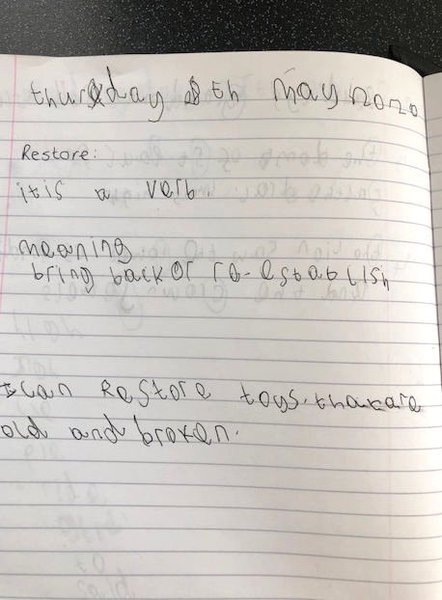 thursday 8th may 2020
Restore:
it is a verb.
meaning
bring back or re-establish
I can Restore toys. that are
old and broken.